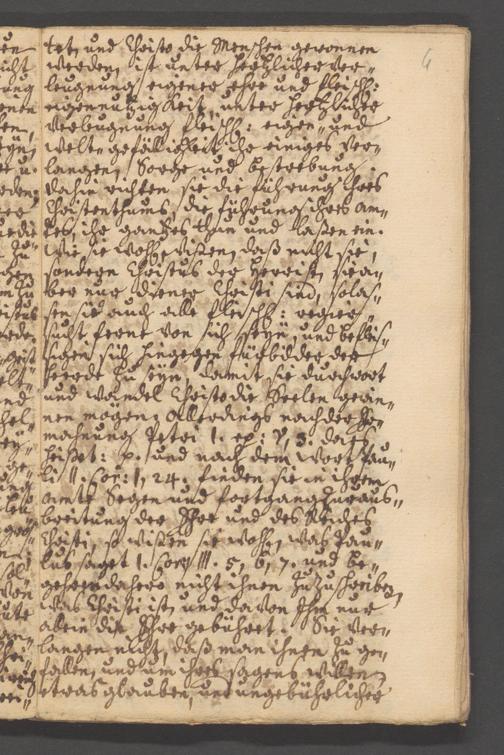 tet, und Christo die Menschen gewonnen
werden, ist unter hertzlicher Ver-
leugnung eigener Ehre und fleischl:
eigennützigkeit, unter hertzlicher
Verleugnung fleischl: eigen- und
Welt-gefälligkeit ihr einiges Ver-
langen, Sorge und bestrebung
dahin richten sie die führung ihres
Christenthums, die führung ihres am-
tes, ihr gantzes thun und laßen ein.
Wie sie wohl wißen, daß nicht sie,
sondern Christus der Herr ist, sie a-
ber nur Diener Christi sind, so las-
sen sie auch alle fleischl: regier-
sucht ferne von sich seyn, und befleis-
sigen sich hingegen fürbilder der
heerde zu seyn, damit sie durch wort
und wandel Christo die Seelen gewin-
nen mögen. Allerdings nach der Er-
mahnung Petri 1. ep: V, 3. da es
heißet: p. und nach dem Wort Pau-
li II. Cor: 1, 24. finden sie in ihrem
amte Segen und fortgang zur aus-
breitung der Ehre und des Reiches
Christi, so wißen sie wohl, was Pau-
lus saget 1. Cor: III. 5, 6, 7. und be-
gehren dahero nicht ihnen zuzuschreiben,
was Christi ist, und davon Ihm nur
allein die Ehre gebühret. Sie ver-
langen nicht, daß man ihnen zu ge-
fallen, und um ihres sagens willen
etwas glaube, und ungebührlicher